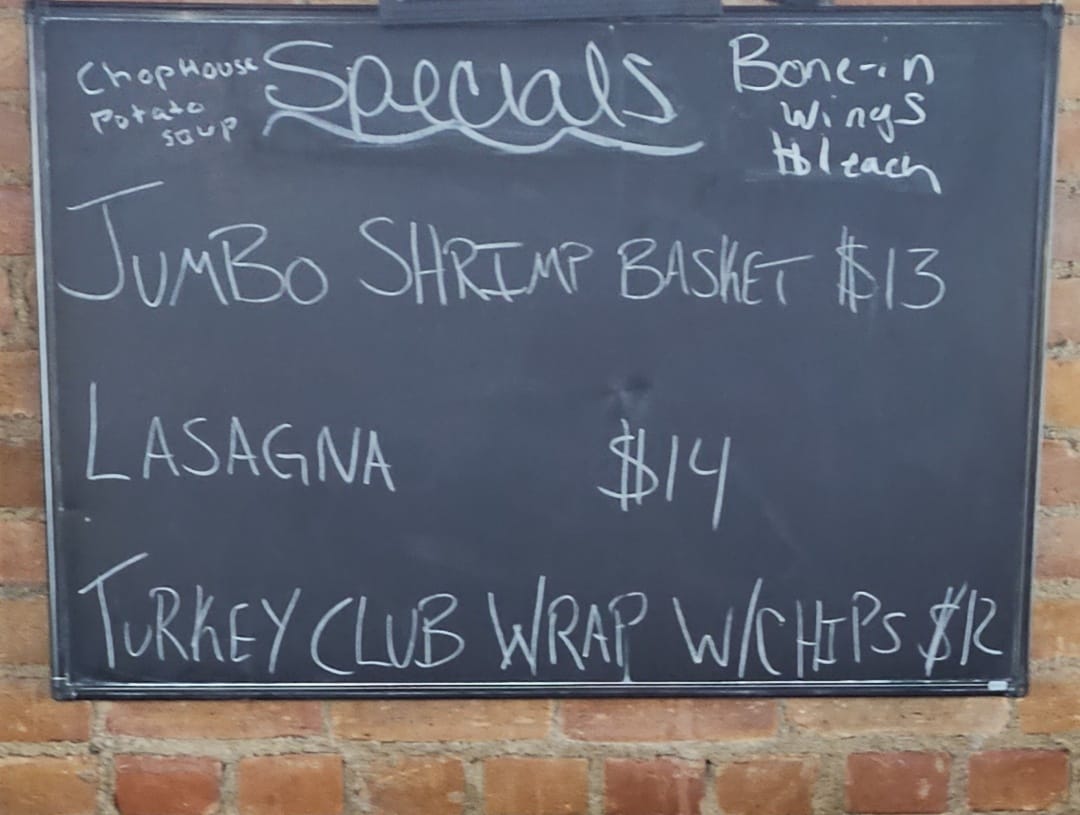 ChopHouse
Potato
soup
Specials
Bone-in
Wings
$1 each
JUMBO SHRIMP BASKET $13
LASAGNA $14
TURKEY CLUB WRAP W/CHIPS $12